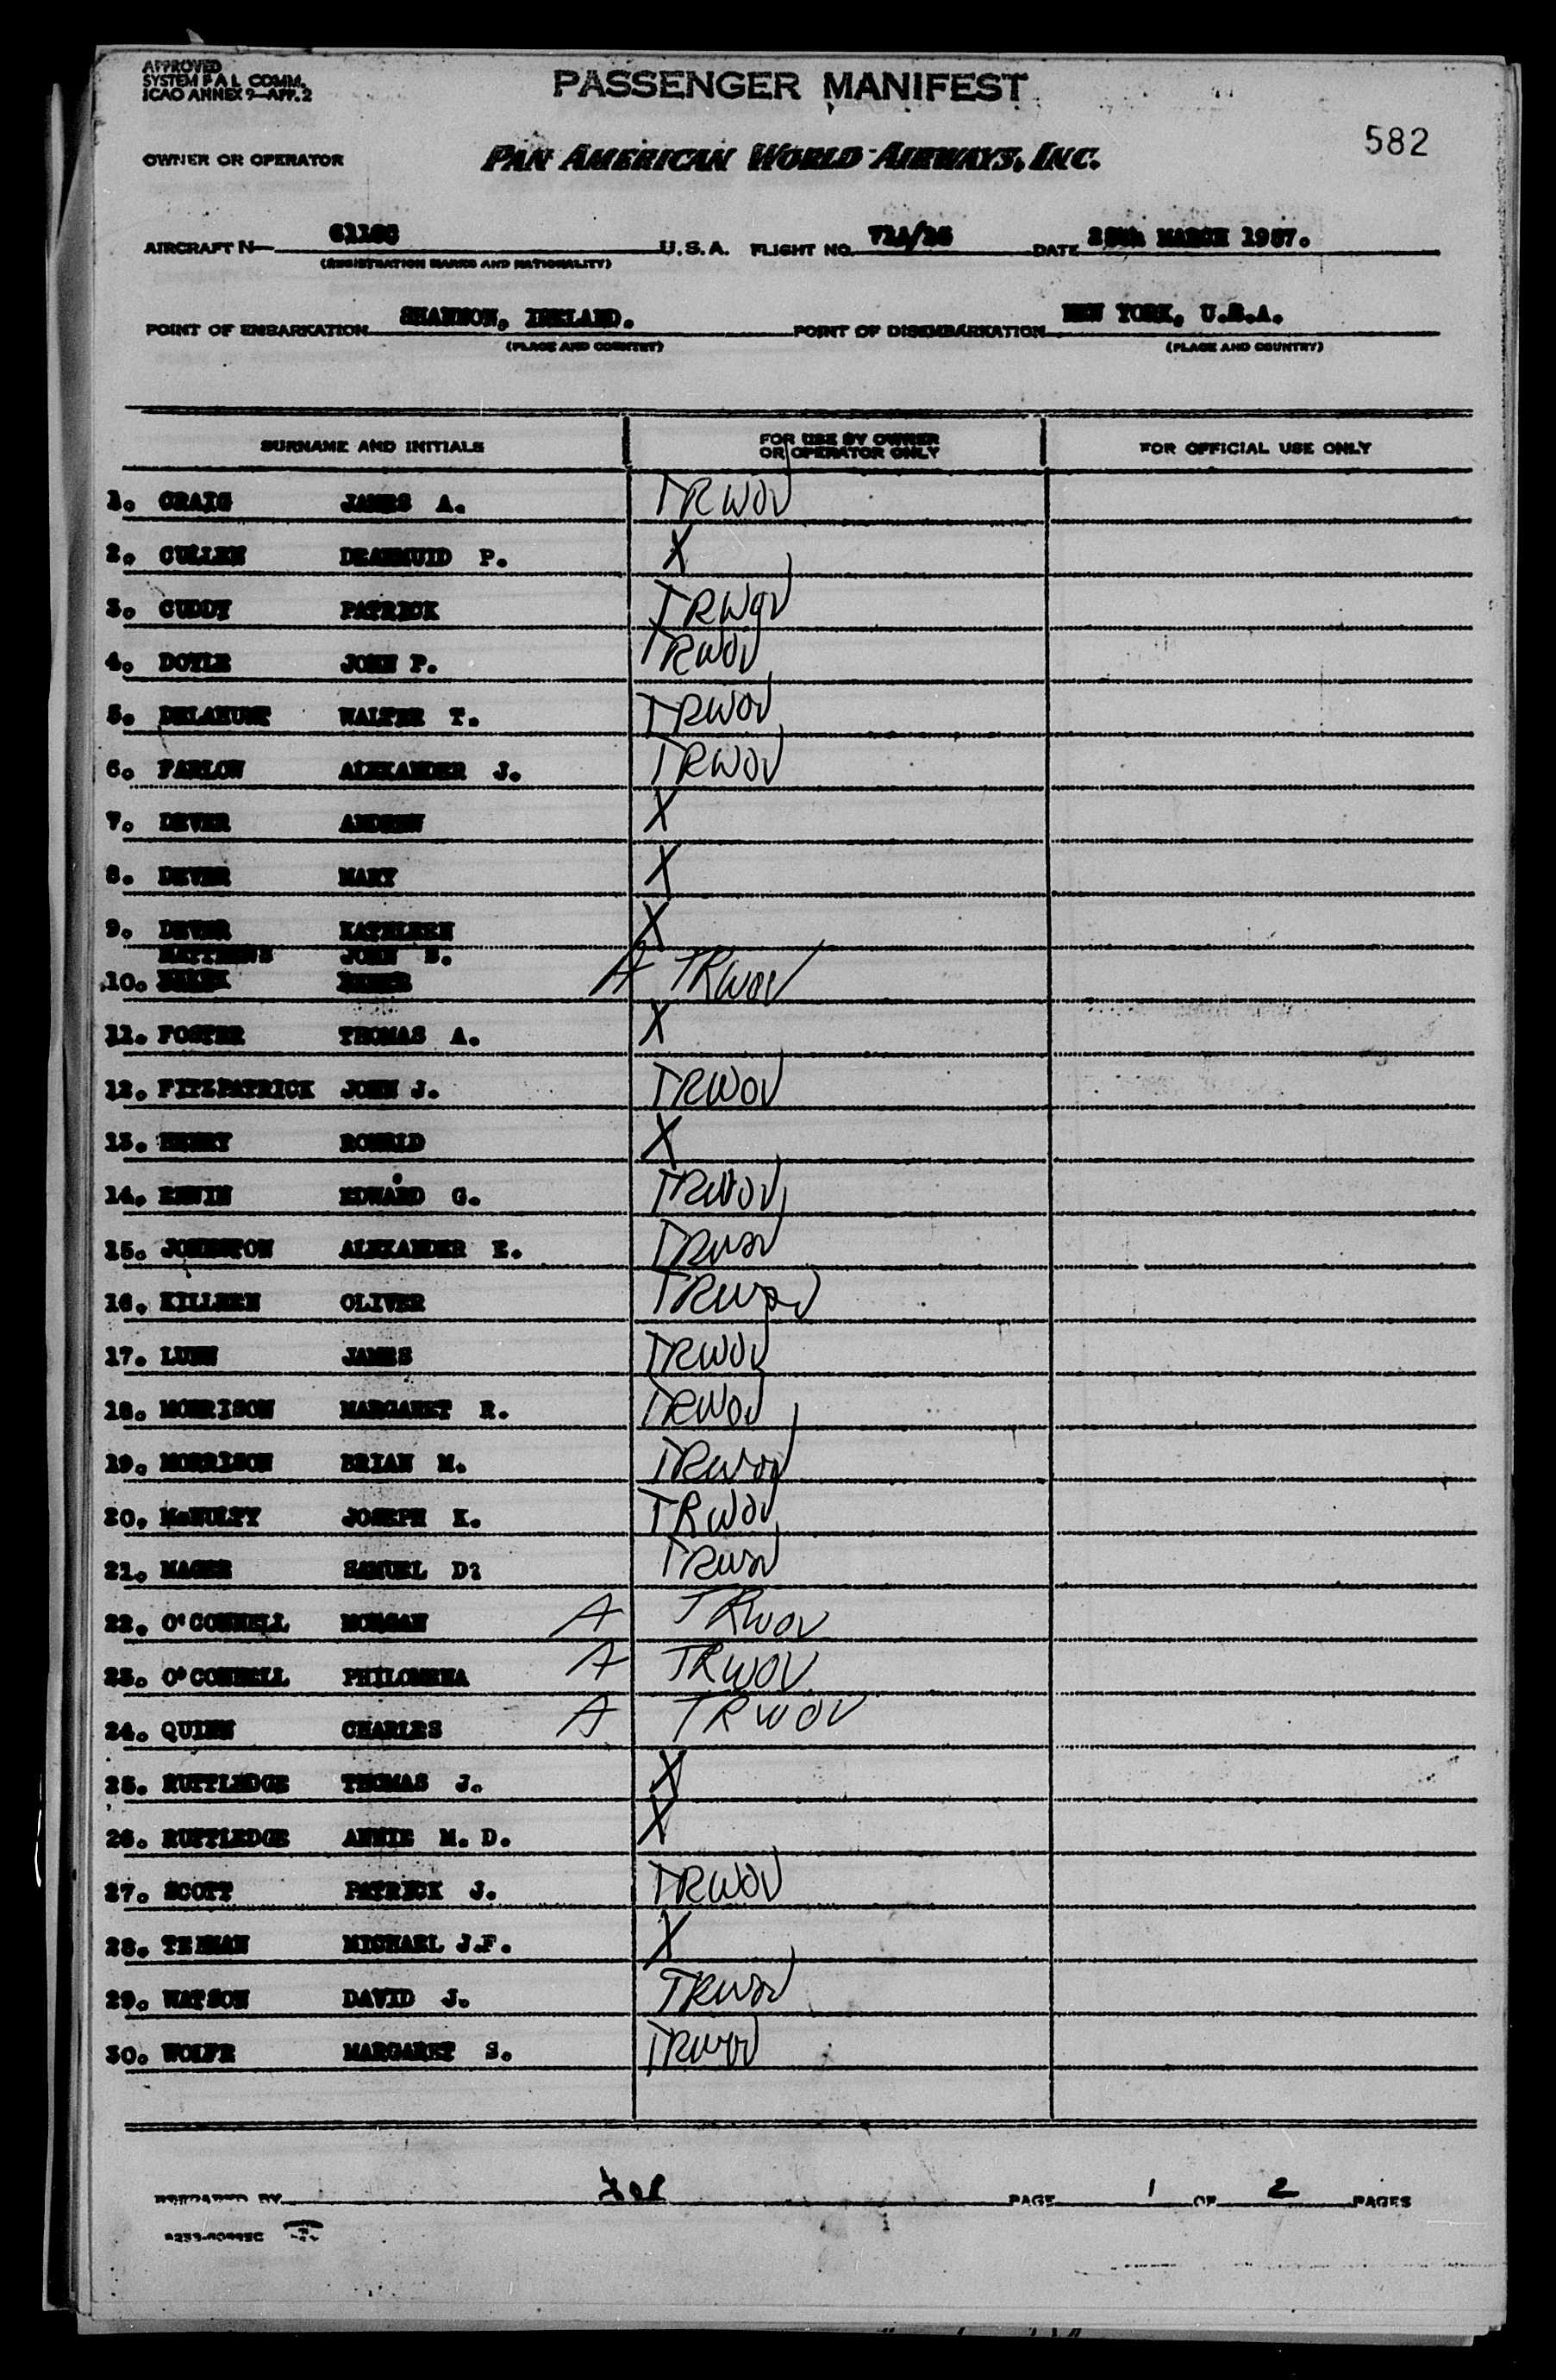 APPROVED
SYSTEM F A L COMM.
ICAO ANNEX 9-APP. 2
PASSENGER MANIFEST
582
OWNER OR OPERATOR PAN AMERICAN WORLD AIRWAYS, INC.
AIRCRAFT N- U.S.A. FLIGHT NO. DATE MARCH 1957.
(REGISTRATION MARKS AND NATIONALITY)
POINT OF EMBARKATION SHANNON, IRELAND. POINT OF DISEMBARKATION NEW YORK, U.S.A.
(PLACE AND COUNTRY) (PLACE AND COUNTRY)
SURNAME AND INITIALS FOR USE BY OWNER OR OPERATOR ONLY FOR OFFICIAL USE ONLY
1. CRAIG JAMES A. TRWOV
2. CULLEN P. X
3. CUDDY PATRICK TRWOV
4. DOYLE JOHN P. TRWOV
5. DELAHUNT WALTER T. TRWOV
6. ALEXANDER J. TRWOV
7. DEVER ANDREW X
8. DEVER MARY X
9. DEVER KATHLEEN X
MATTHEWS JOHN
10. A TRWOV
11. FOSTER THOMAS A. X
12. FITZPATRICK JOHN J. TRWOV
13. HENRY RONALD X
14. EDWARD G. TRWOV
15. JOHNSTON ALEXANDER E. TRWOV
16. KILLEEN OLIVER TRWOV
17. LUNN JAMES TRWOV
18. MORRISON MARGARET R. TRWOV
19. MORRISON BRIAN M. TRWOV
20. McNULTY JOSEPH K. TRWOV
21. MAGEE SAMUEL D? TRWOV
22. O'CONNELL MORGAN A TRWOV
23. O'CONNELL PHILOMENA A TRWOV
24. QUINN CHARLES A TRWOV
25. RUTTLEDGE THOMAS J. X
26. RUTTLEDGE ANNIE M. D. X
27. SCOTT PATRICK J. TRWOV
28. MICHAEL J.F. X
29. WATSON DAVID J. TRWOV
30. WOLFE MARGARET S. TRWOV
PREPARED BY PAGE 1 OF 2 PAGES